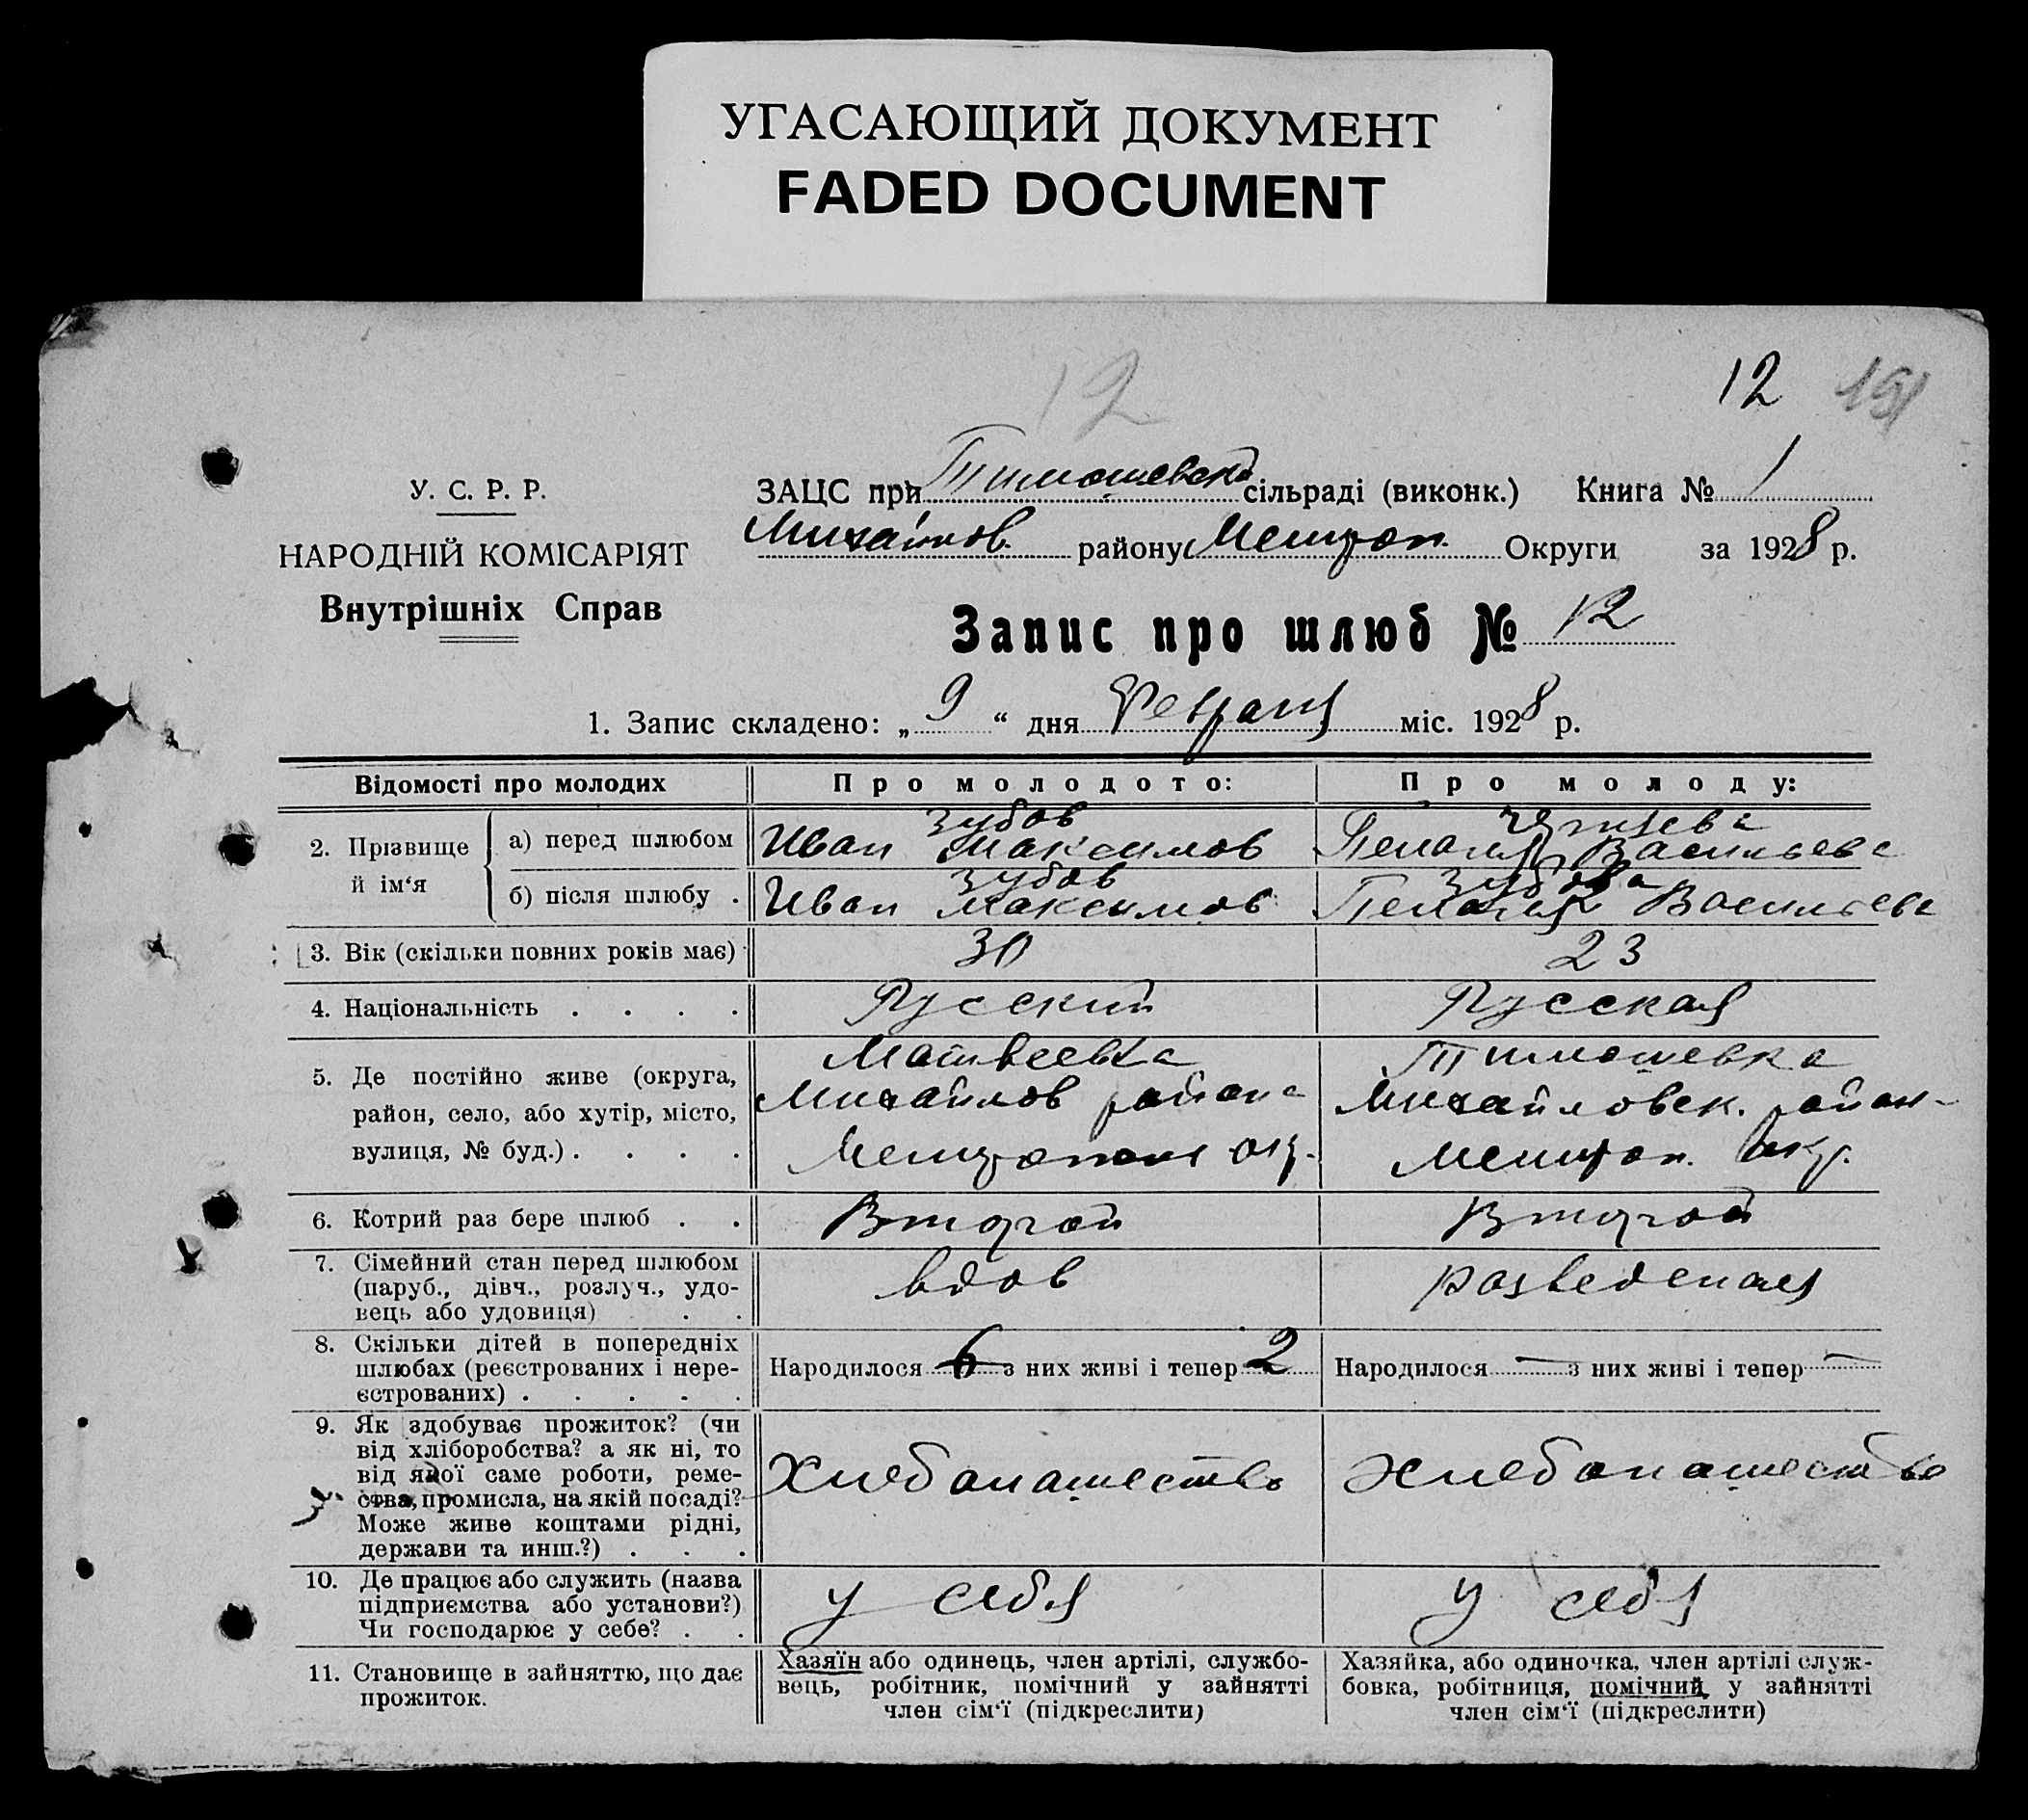 УГАСАЮЩИЙ ДОКУМЕНТ
FADED DOCUMENT
12
12 191
У. С. Р. Р.
НАРОДНІЙ КОМІСАРІЯТ
Внутрішніх Справ
ЗАЦС при Тимошевско сільраді (виконк.) Книга № 1
Михайлов. району Мелитоп. Округи за 1928 р.
Запис про шлюб № 12
1. Запис складено: „ 9 “ дня Февраля міс. 1928 р.
Відомості про молодих
Про молодого:
Про молоду:
2. Прізвище й ім‘я
а) перед шлюбом
Зубов
Иван Максимов
Пелагея Васильева
б) після шлюбу .
Зубов
Иван Максимов
Зубова
Пелагея Васильева
3. Вік (скільки повних років має)
30
23
4. Національність . . . .
Русский
Русская
5. Де постійно живе (округа,
район, село, або хутір, місто,
вулиця, № буд.) . . . .
Матвеевка
Михайлов района
Мелитополь окр.
Тимошевка
Михайловск. район
Мелитоп. окр.
6. Котрий раз бере шлюб . .
Второй
Второй
7. Сімейний стан перед шлюбом
(паруб., дівч., розлуч., удо-
вець або удовиця) . .
вдов
разведеная
8. Скільки дітей в попередніх
шлюбах (реєстрованих і нере-
єстрованих) . . . . .
Народилося 6 з них живі і тепер 2
Народилося — з них живі і тепер —
9. Як здобуває прожиток? (чи
від хліборобства? а як ні, то
від якої саме роботи, реме-
ства, промисла, на якій посаді?
Може живе коштами рідні,
держави та инш.?) . . .
Хлебопашество
Хлебопашество
10. Де працює або служить (назва
підприємства або установи?)
Чи господарює у себе? . .
У себя
У себя
11. Становище в зайняттю, що дає
прожиток.
Хазяїн або одинець, член артілі, службо-
вець, робітник, помічний у зайнятті
член сім‘ї (підкреслити)
Хазяйка, або одиночка, член артілі служ-
бовка, робітниця, помічний у зайнятті
член сім‘ї (підкреслити)